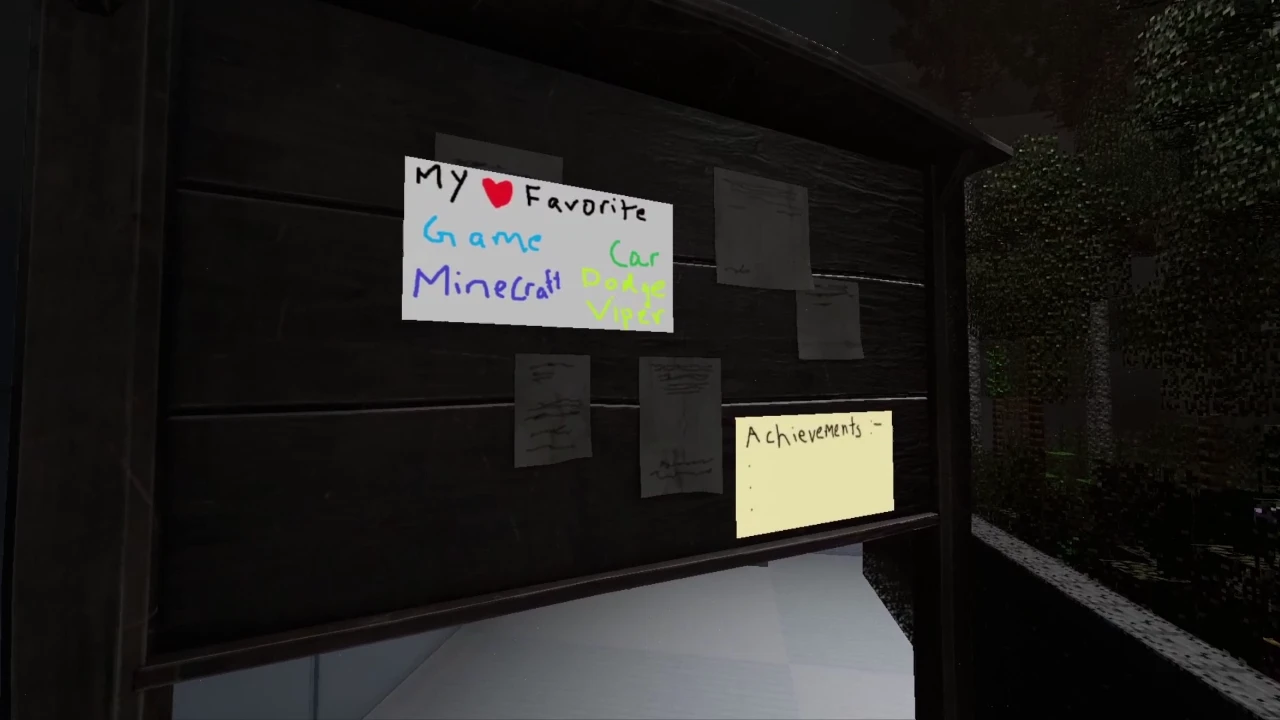 My ❤ Favorite
Game
Minecraft
Car
Dodge
Viper
Achievements :-